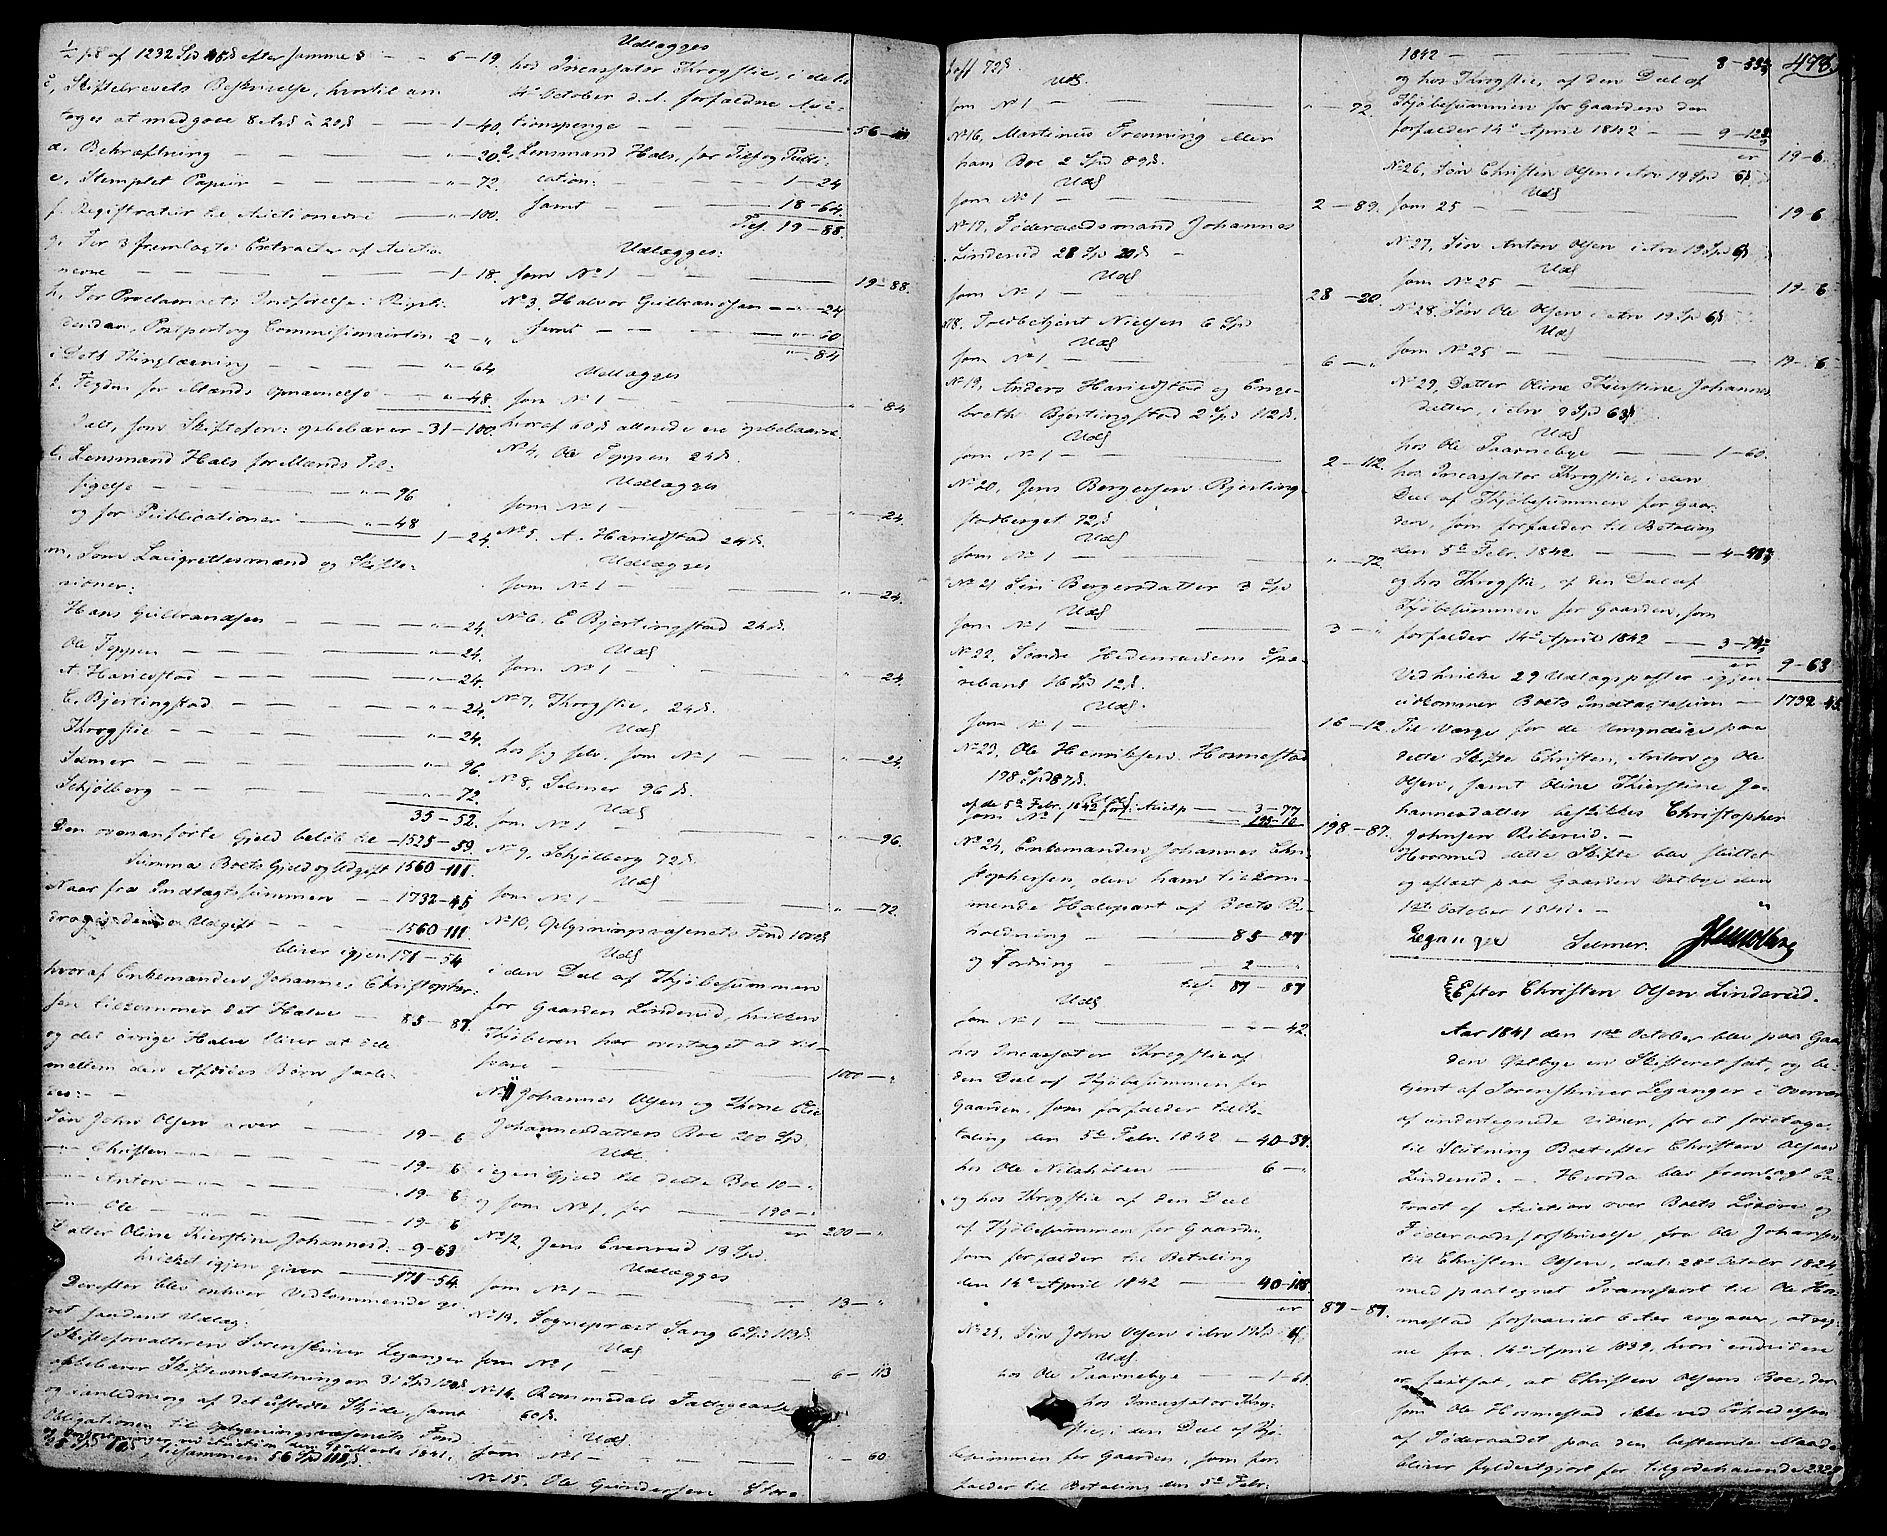 ½ pCt af 1232 Spd 45 s efter samme § - - 6-19.
c, Skiftebrevets Beskrivelse, hvortil an-
toges at medgaae 8 Ark à 20 s - - 1-40.
d. Bekræftning - - - "-20.
e, Stemplet Papiir - - - "-72.
f. Registratur til Auctionerne - "-100.
g. For 3 fremlagte Extracter af Auctio-
nerne - - - 1-18.
h. For Proclamaets Indførelse i Rigsti-
denden, Postport og Commissionairløn 2-"
i Dets Thinglæsning - - "-64
k. Fogden for Mænds Opnævnelse "-48.
Ialt, som Skifteforv: opbebærer - 31-100.
l. Lensmand Hals for Mænds Til-
sigelse - - "-96
og for Publicationer - "-48
1-24.
m, Som Laugrettesmænd og Skifte-
Hans Gulbrandsen - - - "-24.
Ole Toppen - - - "-24.
A. Harildstad - - - "-24.
E. Bjertingstad - - - "-24.
Krogstie - - - "-24.
Selmer - - - "-96.
Schjølberg - - - "-72.
35-52.
Den ovenanførte Gjeld beløb til - 1525-59.
Summa Boets Gjeld og Udgift 1560-111.
Naar fra Indtægtssummen - - 1732-45
drages denne Udgift - - - 1560-111.
bliver igjen 171-54
hvoraf Enkemanden Johannes Christopher-
sen tilkommer det Halve - 85-87.
og det øvrige Halve bliver at dele
mellem den Afdødes Børn saale-
des: -
Søn John Olsen arver - - 19-6
"- Christen - " - - - 19-6
"- Anton - " - - - 19-6
"- Ole - - " - - 19-6
Datter Oline Kierstine Johannesd. - 9-63
hvilket igjen giver - 171-54.
Derefter blev enhver Vedkommende gi-
vet saadant Udlæg:
1 Skifteforvalteren Sorenskriver Leganger
opbebærer Skifteomkostninger 31 Spd 100 s
og i anledning af det udstedte Skjøde, samt
Obligationen til Oplysningsvæsenets Fond
1841,
25 Spd 10 s, tilsammen 56 Spd 111 s.
Udlægges
hos Incassator Krogstie, i de til
4de October d. A. forfaldne Auc-
tionspenge - - - 56-111
2, Lensmand Hals, for Tils og Publi-
cation: - - - 1-24
samt - - - 18-64.
Tils 19-88.
Udlægges:
som No 1 - - - 19-88.
No 3. Halvor Gulbrandsen - - "-24
samt - - - "-60
"-84
Udlægges
som No 1 - - - "-84
hvoraf 60 s allerede ere opbebaarne.
No 4, Ole Toppen 24 s.
Udlægges
som No 1 - - - "-24.
No 5. A. Harildstad 24 s.
Udlægges
som No 1 - - - "-24.
No 6. E Bjertingstad 24 s.
Udl
som No 1 - - - "-24.
No 7, Krogstie, 24 s.
Udl
hos sig selv, som No 1 - - "-24.
No 8, Selmer 96 s.
Udl
som No 1 - - - "-96.
No 9, Schjølberg 72 s.
Udl
som No 1 - - - "-72.
No 10, Oplysningsvæsenets Fond 1000 s
Udl
i den Deel af Kjøbesummen
for Gaarden Linderud, hvilken
Kjøberen har overtaget at til-
svare - - - 1000-"
No 11 Johannes Olsen og Kone Else
Johannesdatters Boe 200 Spd.
Udl.
i egen Gjeld til dette Boe 10-"
og som No 1, for - - 190-"
er 200-"
No 12, Jens Evenrud 13 Spd.
Udlægges
som No 1 - - - 13-"
No 13. Sognepræst Sang 6 Spd 113 s.
Udl
som No 1 - - - 6-113
No 14. Rommedals Fattigcasse
60 s.
Udl
som No 1 - - - "-60
No 15. Ole Gundersen Stor-
hoff 72 s.
Udl.
som No 1 - - - "-72.
No 16, Martinus Frenning eller
hans Boe 2 Spd 89 s.
Udl
som No 1 - - - 2-89.
No 17, Føderaadsmand Johannes
Linderud 28 Spd 20 s -
Udl
som No 1 - - - 28-20
No 18. Toldbetjent Nielsen 6 Spd
Udl
som No 1 - - - 6-"
No 19, Anders Harildstad og Enge-
breth Bjertingstad 2 Spd 112 s.
Udl
som No 1 - - - 2-112.
No 20, Jens Bergersen Bjerting-
stadberget 72 s
Udl
som No 1 - - - "-72
No 21 Siri Bergersdatter 3 Spd
Udl
som No 1 - - - 3-"
No 22, Søndre Hedemarkens Spa-
rebank 16 Spd 12 s.
Udl.
som No 1 - - - 16-12.
No 23, Ole Henriksen Hosmestad
198 Spd 87 s.
Udl
af de 5te Febr. 1842 forf: Auctp - 3-77
som No 1 - - - 195-10
198-87.
No 24, Enkemanden Johannes Chri-
stophersen, den ham tilkom-
mende Halvpart af Boets Be-
holdning - - - 85-87
og Fordring - - - 2-"
tils. 87-87
Udl
som No 1 - - - "-42.
hos Incassator Krogstie af
den Deel af Kjøbesummen for
Gaarden, som forfalder til Be-
taling den 5te Febr. 1842 - 40-37.
hos Ole Nilsholen - - 6-"
og hos Krogstie af den Deel
af Kjøbesummen for Gaarden,
som forfalder til Betaling
den 14de April 1842 - - 40-108.
er 87-87.
No 25, Søn John Olsen i Arv 19 Spd 6 s.
Udl.
hos Ole Taarnebye - - 1-61.
hos Incassator Krog-
stie, i den Deel af Kjø-
besummen for Gaarden, som for-
falder til Betaling den 5te Febr.
1842 - - - 8-53
og hos Krogstie, af den Deel af
Kjøbesummen for Gaarden den
forfalder 14de April 1842 - - 9-12
er 19-6.
No 26, Søn Christen Olsen i Arv 19 Spd 6 s
Udl
som 25 - - - 19-6
No 27, Søn Anton Olsen i Arv 19 Spd 6 s
Udl
som No 25 - - - 19-6
No 28. Søn Ole Olsen i Arv 19 Spd 6 s
Udl
som No 25 - - - 19-6
No 29, Datter Oline Kierstine Johannes-
datter, i Arv 9 Spd 63 s
Udl
hos Ole Taarnebye - - 1-60.
hos Incassator Krogstie, i den
Deel af Kjøbesummen for Gaar-
den, som forfalder til Betaling
den 5te Febr. 1842 - - 4-
og hos Krogstie, af den Deel af
Kjøbesummen for Gaarden, som
forfalder 14de April 1842 - 3-
er 9-63
Ved hvilke 29 Udlægsposter igjen
udkommer Boets Indtægtssum - 1732-45.
Til Værge for de Umyndige paa
dette Skifte Christen, Anton og Ole
Olsen, samt Oline Kierstine Jo-
hannesdatter beskikkes Christopher
Johnsen Ribernd. -
Hvormed dette Skifte blev sluttet
og aflæst paa Gaarden Østbye den
1ste October 1841. -
Leganger Selmer. Schjølberg
478.
Efter Christen Olsen Linderud.
Aar 1841 den 1ste October blev paa Gaar-
den Østbye en Skifteret sat, og be-
tjent af Sorenskriver Leganger i Overvær
af undertegnede Vidner, for at foretage
til Slutning Boet efter Christen Olsen
Linderud. - Hvorda blev fremlagt Ex-
tract af Auction over Boets Løsøre og
Føderaadsforskrivelse, fra Ole Johansen
til Christen Olsen, dat: 28de Octobr 1824
med paategnet Transport til Ole Hos-
mestad forsaavidt 6 Aar angaaer, at reg-
ne fra 14de April 1839, hvori endvidere
er fastsat, at Christen Olsens Boe, der-
som Ole Hosmestad ikke ved Erholdelsen
af Føderaadet paa den bestemte Maade
bliver fyldestgjort for tilgodehavende 232 s